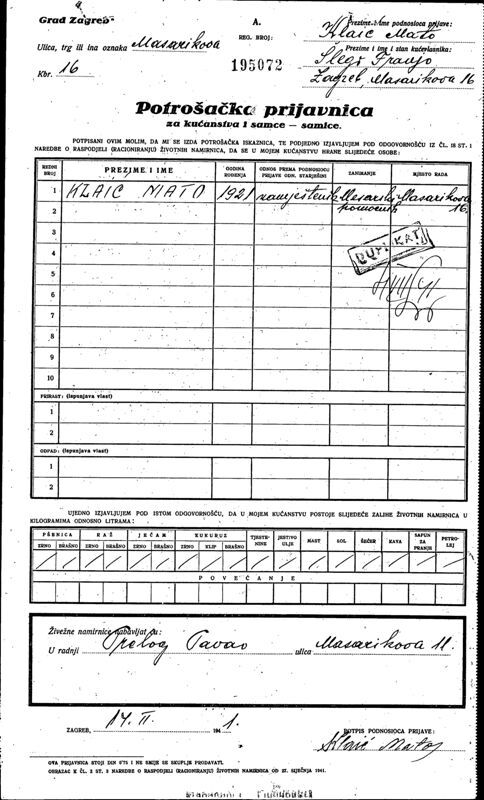 Grad Zagreb
A.
REG. BROJ:
195072
Prezime i ime podnosioca prijave:
Klaić Mato
Prezime i ime i stan kućevlasnika:
Franjo
Zagreb, Masarikova 16
Ulica, trg ili ina oznaka Masarikova
Kbr. 16
Potrošačka prijavnica
za kućanstva i samce — samice.
POTPISANI OVIM MOLIM, DA MI SE IZDA POTROŠAČKA ISKAZNICA, TE PODJEDNO IZJAVLJUJEM POD ODGOVORNOŠĆU IZ ČL. 18 ST. 1
NAREDBE O RASPODJELI (RACIONIRANJU) ŽIVOTNIH NAMIRNICA, DA SE U MOJEM KUĆANSTVU HRANE SLIJEDEĆE OSOBE:
REDNI BROJ PREZIME I IME GODINA ROĐENJA ODNOS PREMA PODNOSIOCU PRIJAVE ODN. STARJEŠINI ZANIMANJE MJESTO RADA
1 KLAIĆ MATO 1921 namještenik Mesarski pomoćnik Masarikova 16.
2
3
DUPLIKAT
4
5
6
7
8
9
10
PRIRAST: (Ispunjava vlast)
1
2
OTPAD: (Ispunjava vlast)
1
2
UJEDNO IZJAVLJUJEM POD ISTOM ODGOVORNOŠĆU, DA U MOJEM KUĆANSTVU POSTOJE SLIJEDEĆE ZALIHE ŽIVOTNIH NAMIRNICA U
KILOGRAMIMA ODNOSNO LITRAMA:
PŠENICA RAŽ JEČAM KUKURUZ TJESTENINE JESTIVO ULJE MAST SOL ŠEĆER KAVA SAPUN ZA PRANJE PETROLEJ
ZRNO BRAŠNO ZRNO BRAŠNO ZRNO BRAŠNO ZRNO KLIP BRAŠNO
POVEĆANJE
Živežne namirnice nabavljat ću:
U radnji Prelog Pavao ulica Masarikova 11.
ZAGREB, 14. II. 1941.
POTPIS PODNOSIOCA PRIJAVE:
Klaić Mato
OVA PRIJAVNICA STOJI DIN 0'75 I NE SMIJE SE SKUPLJE PRODAVATI.
OBRAZAC K ČL. 2 ST. 2 NAREDBE O RASPODJELI (RACIONIRANJU) ŽIVOTNIH NAMIRNICA OD 27. SIJEČNJA 1941.